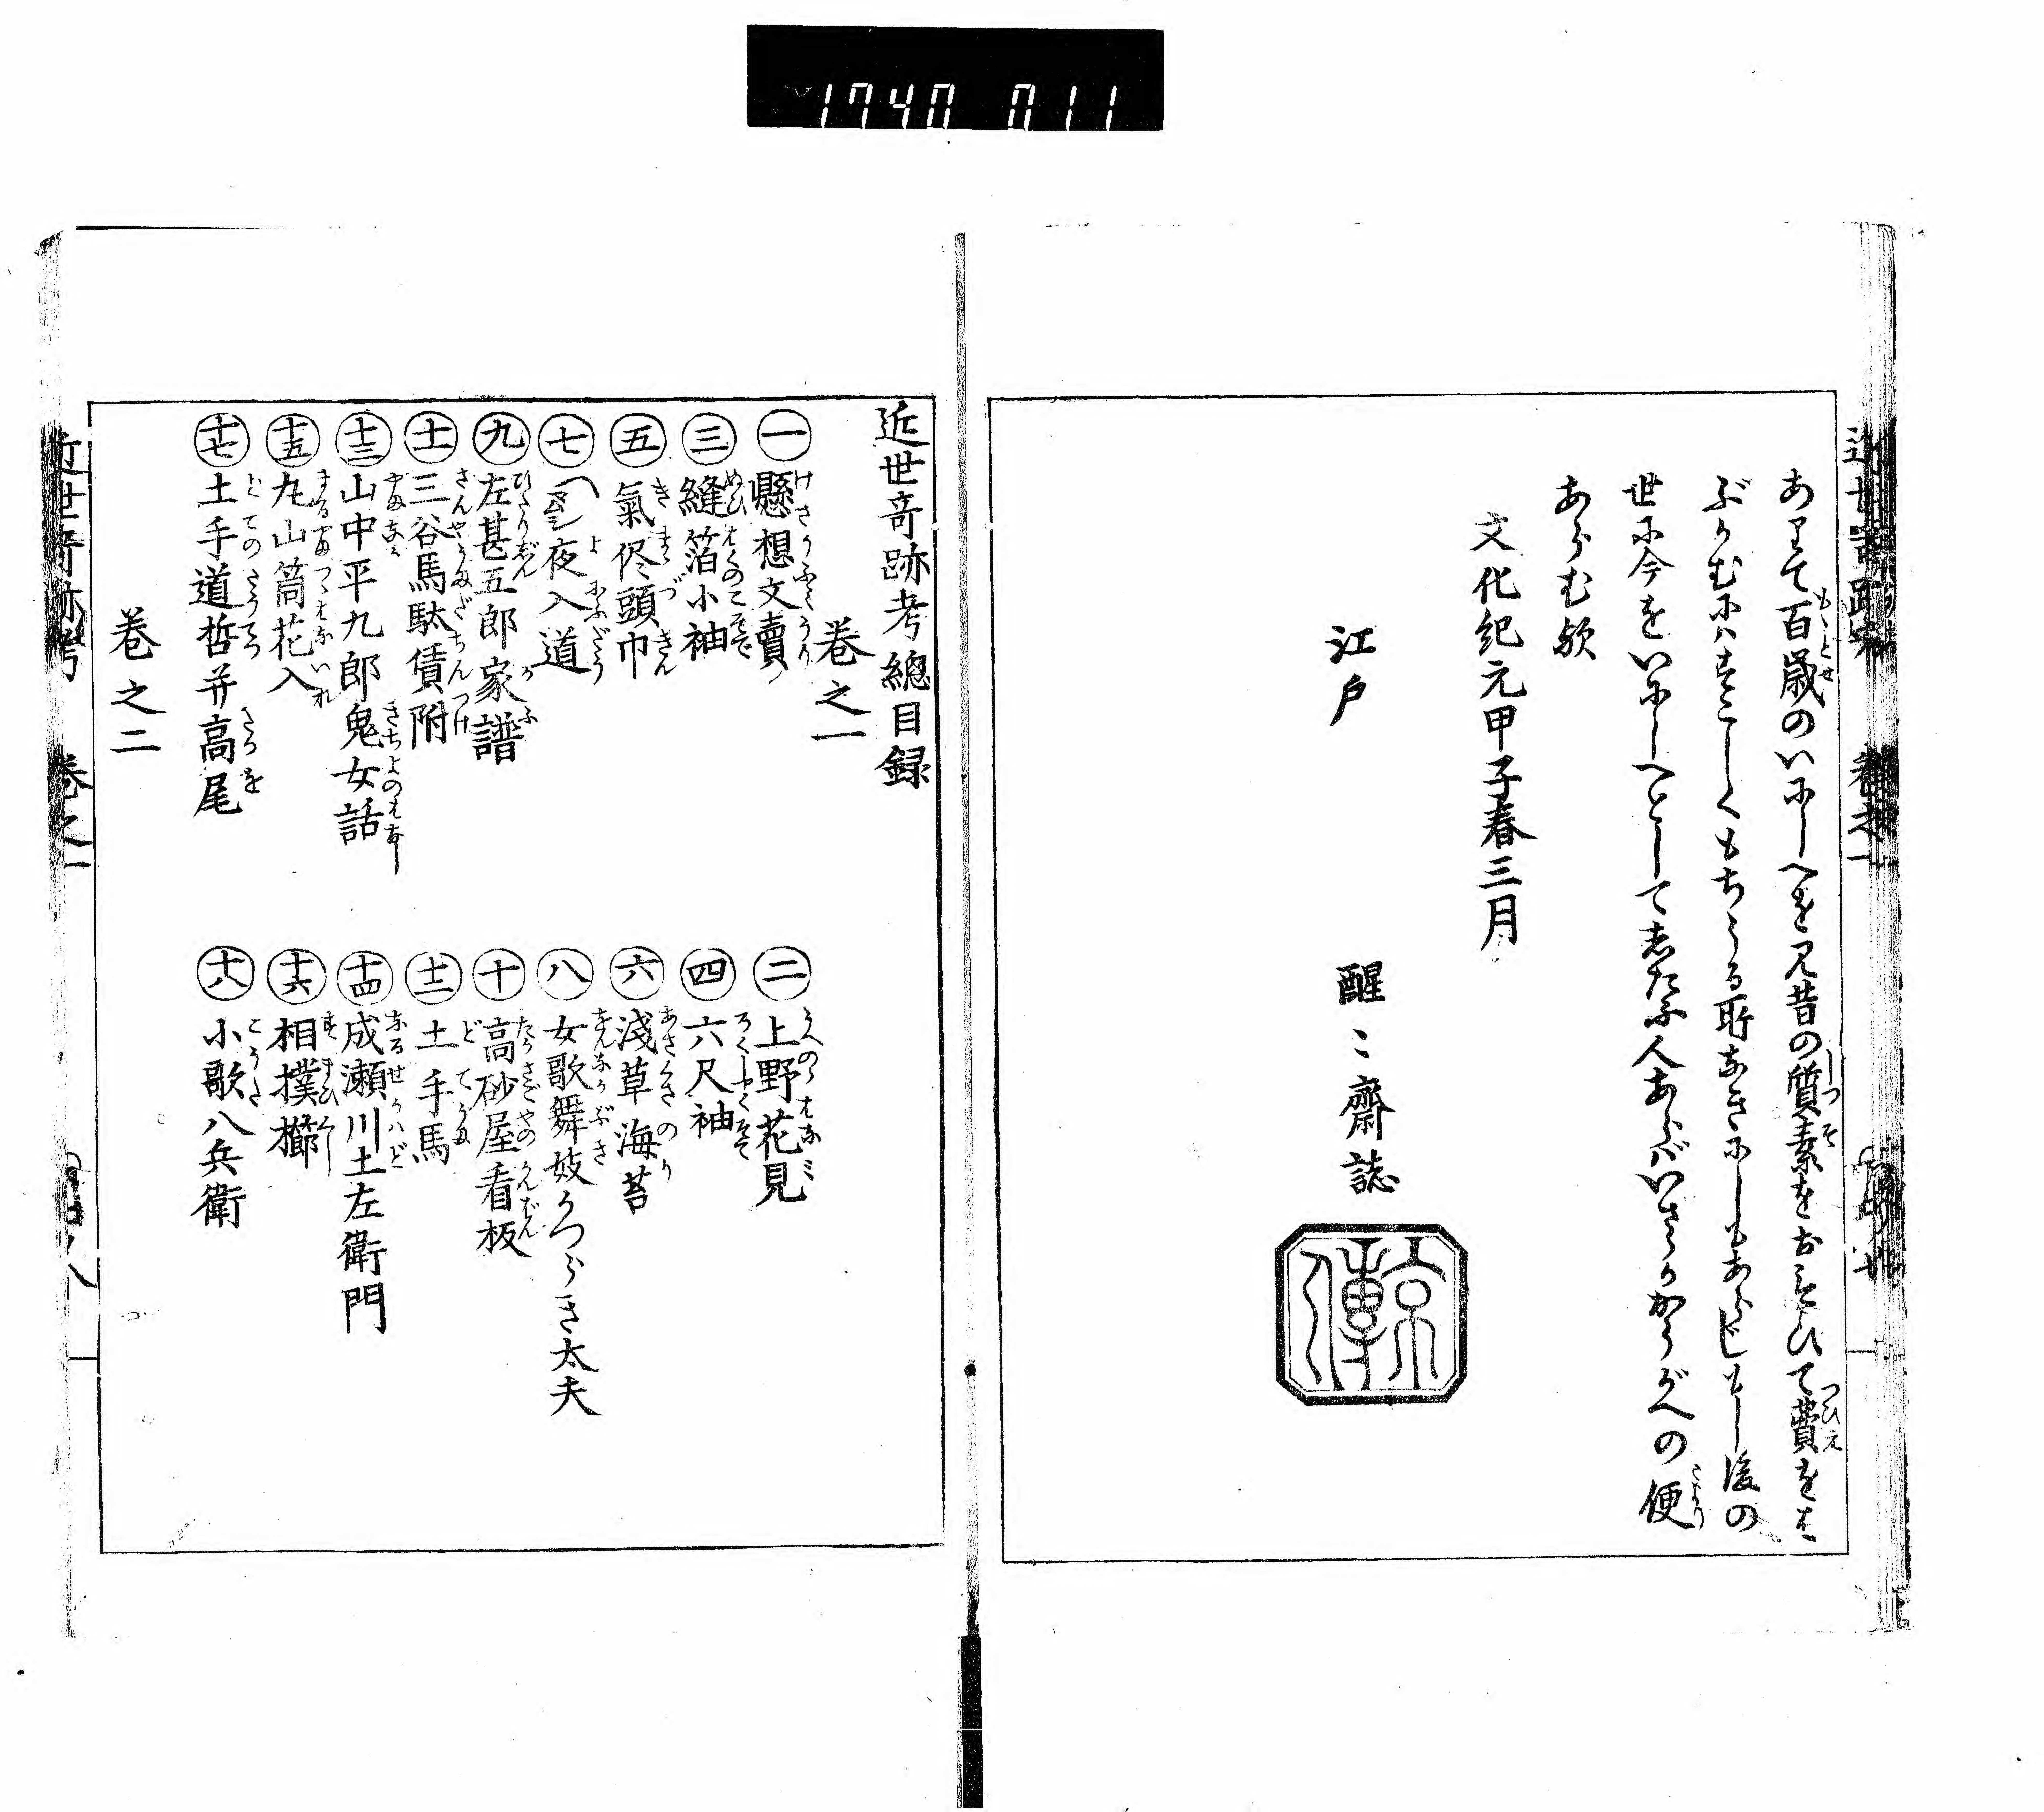 1740 011
ありて百歳のいにしへを見昔の質素をおもひて費をは
ぶかむにハすこしくもちうる所なきにしもあらじもし後の
世に今をいにしへとして志たふ人あらバいさゝかかうがへの便
あらむ歟
文化紀元甲子春三月
江戸　醒々齋誌
京傳
近世奇跡考總目録
巻之一
一 懸想文賣
二 上野花見
三 縫箔小袖
四 六尺袖
五 氣侭頭巾
六 淺草海苔
七 夜入道
八 女歌舞妓かつらき太夫
九 左甚五郎家譜
十 高砂屋看板
十一 三谷馬駄賃附
十二 土手馬
十三 山中平九郎鬼女話
十四 成瀬川土左衛門
十五 丸山筒花入
十六 相撲櫛
十七 土手道哲并高尾
十八 小歌八兵衛
巻之二
近世奇跡考　巻之一